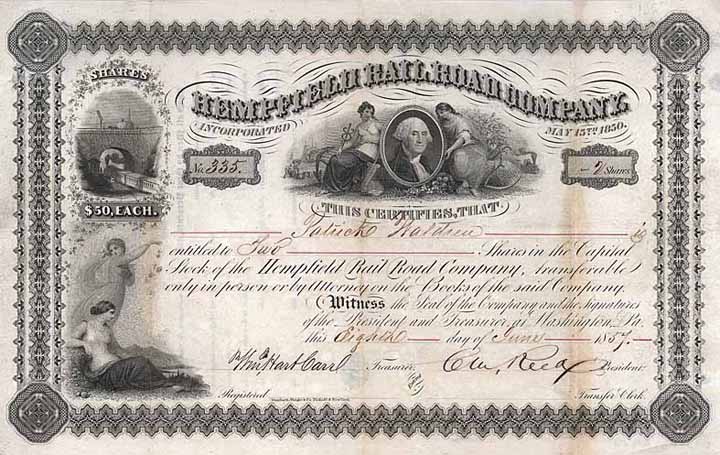 SHARES
HEMPFIELD RAIL ROAD COMPANY.
INCORPORATED
MAY 15TH 1850.
No. 335.
2 Shares
$50, EACH.
THIS CERTIFIES, THAT
Patrick is
entitled to Two Shares in the Capital
Stock of the Hempfield Rail Road Company, transferable
only in person or by Attorney on the Books of the said Company.
Witness the Seal of the Company and the Signatures
of the President and Treasurer at Washington Pa.
this Eighth day of June 1857.
Treasurer
President
Registered
Transfer Clerk.